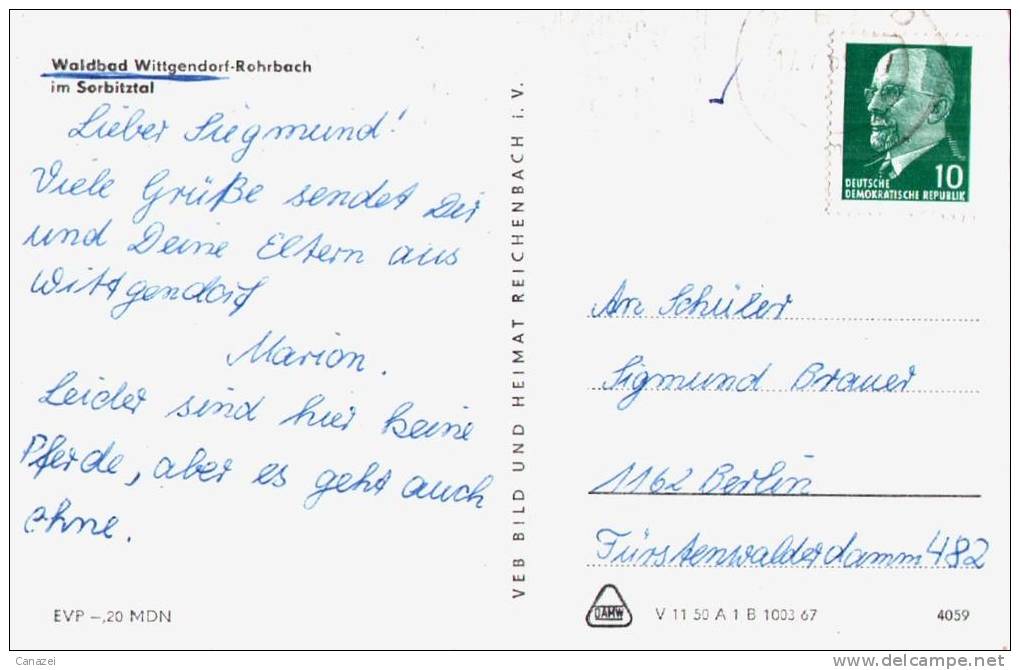 Waldbad Wittgendorf-Rohrbach
im Sorbitztal
Lieber Siegmund!
Viele Grüße sendet Dir
und Deine Eltern aus
Wittgendorf
Marion.
Leider sind hier keine
Pferde, aber es geht auch
ohne.
EVP -,20 MDN
VEB BILD UND HEIMAT REICHENBACH i. V.
DEUTSCHE
DEMOKRATISCHE REPUBLIK
10
An Schüler
Sigmund Brauer
1162 Berlin
Fürstenwalderdamm 482
DAMW
V 11 50 A 1 B 1003 67
4059
Canazei
www.delcampe.net